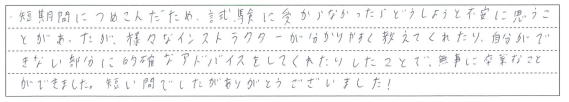 ・短期間につめこんだため、試験に受からなかったらどうしようと不安に思うこ
とがあったが、様々なインストラクターが分かりやすく教えてくれたり、自分がで
きない部分に的確なアドバイスをしてくれたりしたことで、無事に卒業すること
ができました。短い間でしたがありがとうございました!